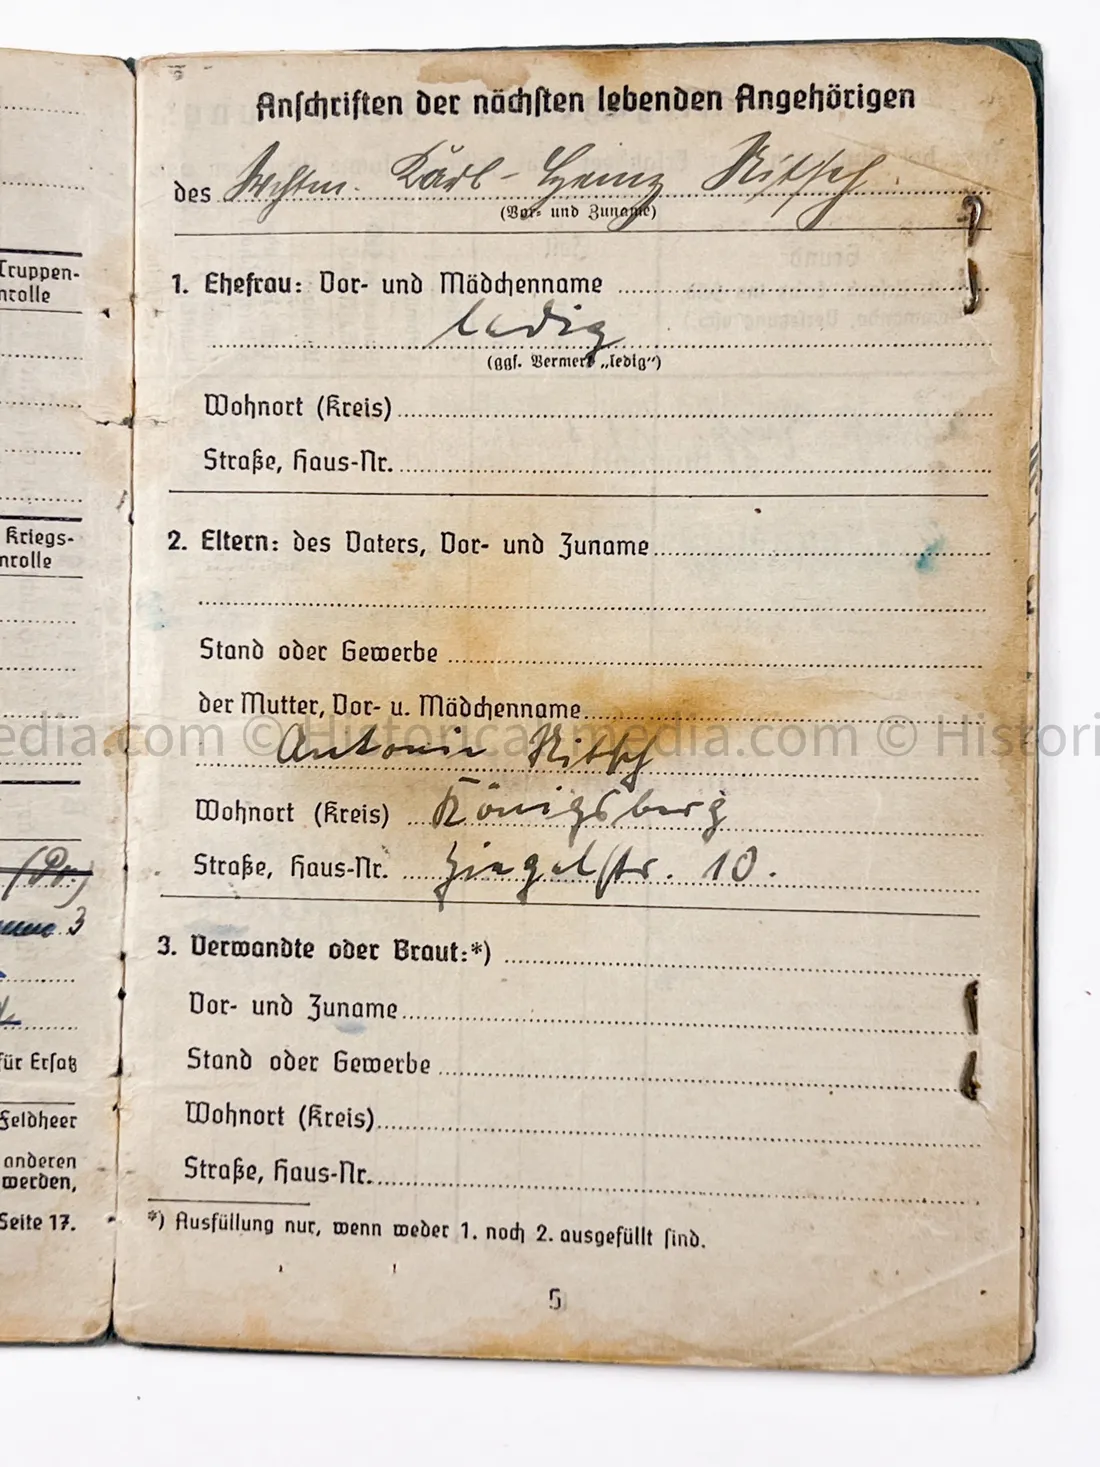 Truppen-
nrolle
Kriegs-
nrolle
(Pr.)
3
für Ersatz
Feldheer
anderen
werden,
Seite 17.
Anschriften der nächsten lebenden Angehörigen
des Wchtm. Karl-Heinz Nitsch
(Vor- und Zuname)
1. Ehefrau: Vor- und Mädchenname
ledig
(ggf. Vermerk „ledig“)
Wohnort (Kreis)
Straße, Haus-Nr.
2. Eltern: des Vaters, Vor- und Zuname
Stand oder Gewerbe
der Mutter, Vor- u. Mädchenname
edia.com © Historicalmedia.com © Histori
Antonie Nitsch
Wohnort (Kreis) Königsberg
Straße, Haus-Nr. Ziegelstr. 10.
3. Verwandte oder Braut:*)
Vor- und Zuname
Stand oder Gewerbe
Wohnort (Kreis)
Straße, Haus-Nr.
*) Ausfüllung nur, wenn weder 1. noch 2. ausgefüllt sind.
5